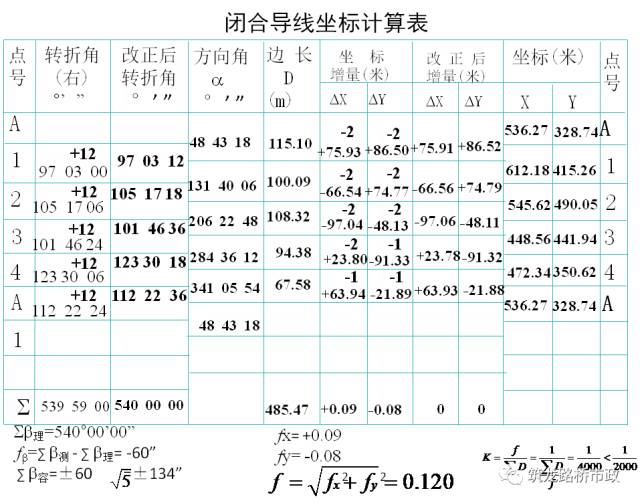 闭合导线坐标计算表
点号 转折角(右) ° ′ ″ 改正后转折角 ° ′ ″ 方向角 α ° ′ ″ 边 长 D (m) 坐 标 增量(米) 改 正 后 增量(米) 坐标(米) 点号
ΔX ΔY ΔX ΔY X Y
A 536.27 328.74 A
48 43 18 115.10 -2 -2
+75.93 +86.50 +75.91 +86.52
1 +12 97 03 00 97 03 12 612.18 415.26 1
131 40 06 100.09 -2 -2
-66.54 +74.77 -66.56 +74.79
2 +12 105 17 06 105 17 18 545.62 490.05 2
206 22 48 108.32 -2 -2
-97.04 -48.13 -97.06 -48.11
3 +12 101 46 24 101 46 36 448.56 441.94 3
284 36 12 94.38 -2 -1
+23.80 -91.33 +23.78 -91.32
4 +12 123 30 06 123 30 18 472.34 350.62 4
341 05 54 67.58 -1 -1
+63.94 -21.89 +63.93 -21.88
A +12 112 22 24 112 22 36 536.27 328.74 A
48 43 18
1
Σ 539 59 00 540 00 00 485.47 +0.09 -0.08 0 0
Σβ理=540°00'00"
fβ=Σβ测-Σβ理= -60"
Σβ容=±60 √5 ±134"
fx= +0.09
fy= -0.08
f = √fx²+fy² = 0.120
K = f/ΣD = 1/(ΣD/f) = 1/4000 < 1/2000
筑龙路桥市政